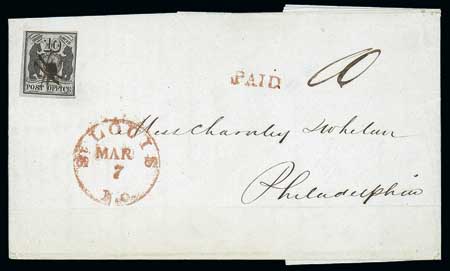 10
POST OFFICE
PAID
10
St LOUIS
MAR
7
Mo.
Mess Charnley & Whelen
Philadelphia